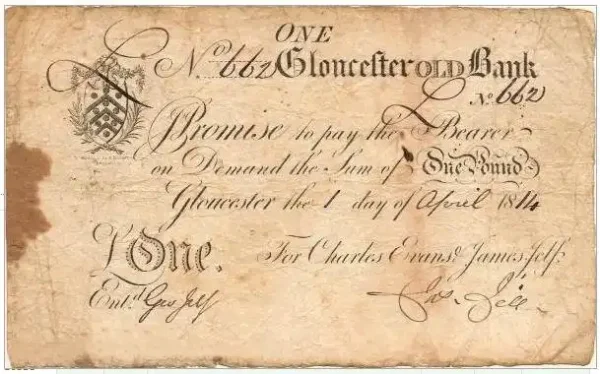 ONE
No. 662 Gloucester OLD Bank
No. 662
I Promise to pay the Bearer
on Demand the Sum of One Pound
Gloucester the 1 day of April 1814
£One.
For Charles Evans & James Jelf.
Ent.d Geo Jelf
Jas. Jelf